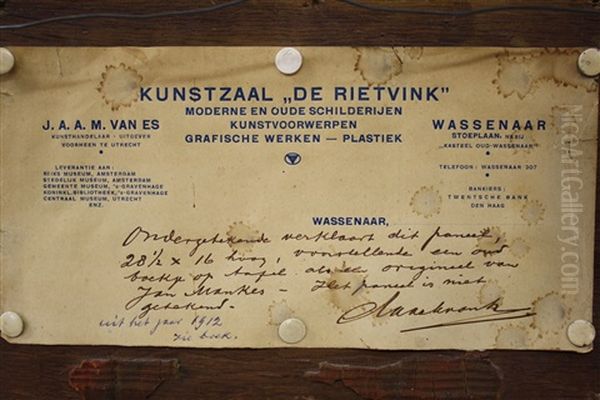 KUNSTZAAL „DE RIETVINK"
MODERNE EN OUDE SCHILDERIJEN
KUNSTVOORWERPEN
GRAFISCHE WERKEN — PLASTIEK
J. A. A. M. VAN ES
KUNSTHANDELAAR - UITGEVER
VOORHEEN TE UTRECHT
LEVERANTIE AAN:
RIJKS MUSEUM, AMSTERDAM
STEDELIJK MUSEUM, AMSTERDAM
GEMEENTE MUSEUM, 's-GRAVENHAGE
KONINKL. BIBLIOTHEEK, 's-GRAVENHAGE
CENTRAAL MUSEUM, UTRECHT
ENZ.
WASSENAAR
STOEPLAAN, NABIJ
„KASTEEL OUD-WASSENAAR"
TELEFOON: WASSENAAR 307
BANKIERS:
TWENTSCHE BANK
DEN HAAG
WASSENAAR,
Ondergetekende verklaart dit paneel,
28½ x 16 hoog, voorstellende een oud
boekje op tafel als een origineel van
Jan Mankes – Het paneel is niet
getekend.
uit het jaar 1912
zie boek.
NiceArtGallery.com